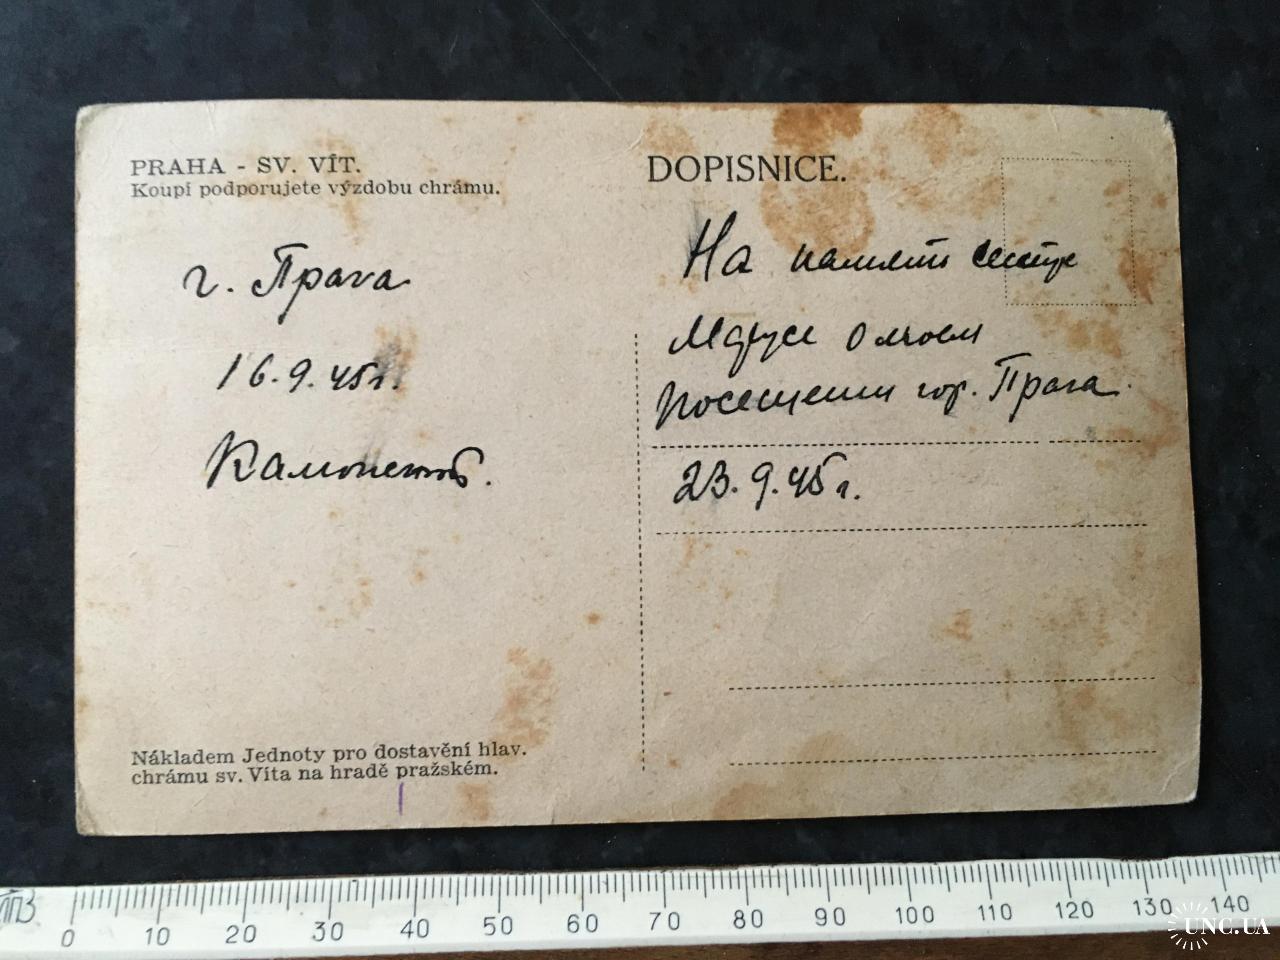 PRAHA - SV. VÍT.
Koupí podporujete výzdobu chrámu.
г. Прага
16.9.45г.
Nákladem Jednoty pro dostavění hlav.
chrámu sv. Víta na hradě pražském.
DOPISNICE.
На памяти сестре
Марусе о моем
посещении гор. Прага.
23.9.45г.
0 10 20 30 40 50 60 70 80 90 100 110 120 130 140
UNC.UA